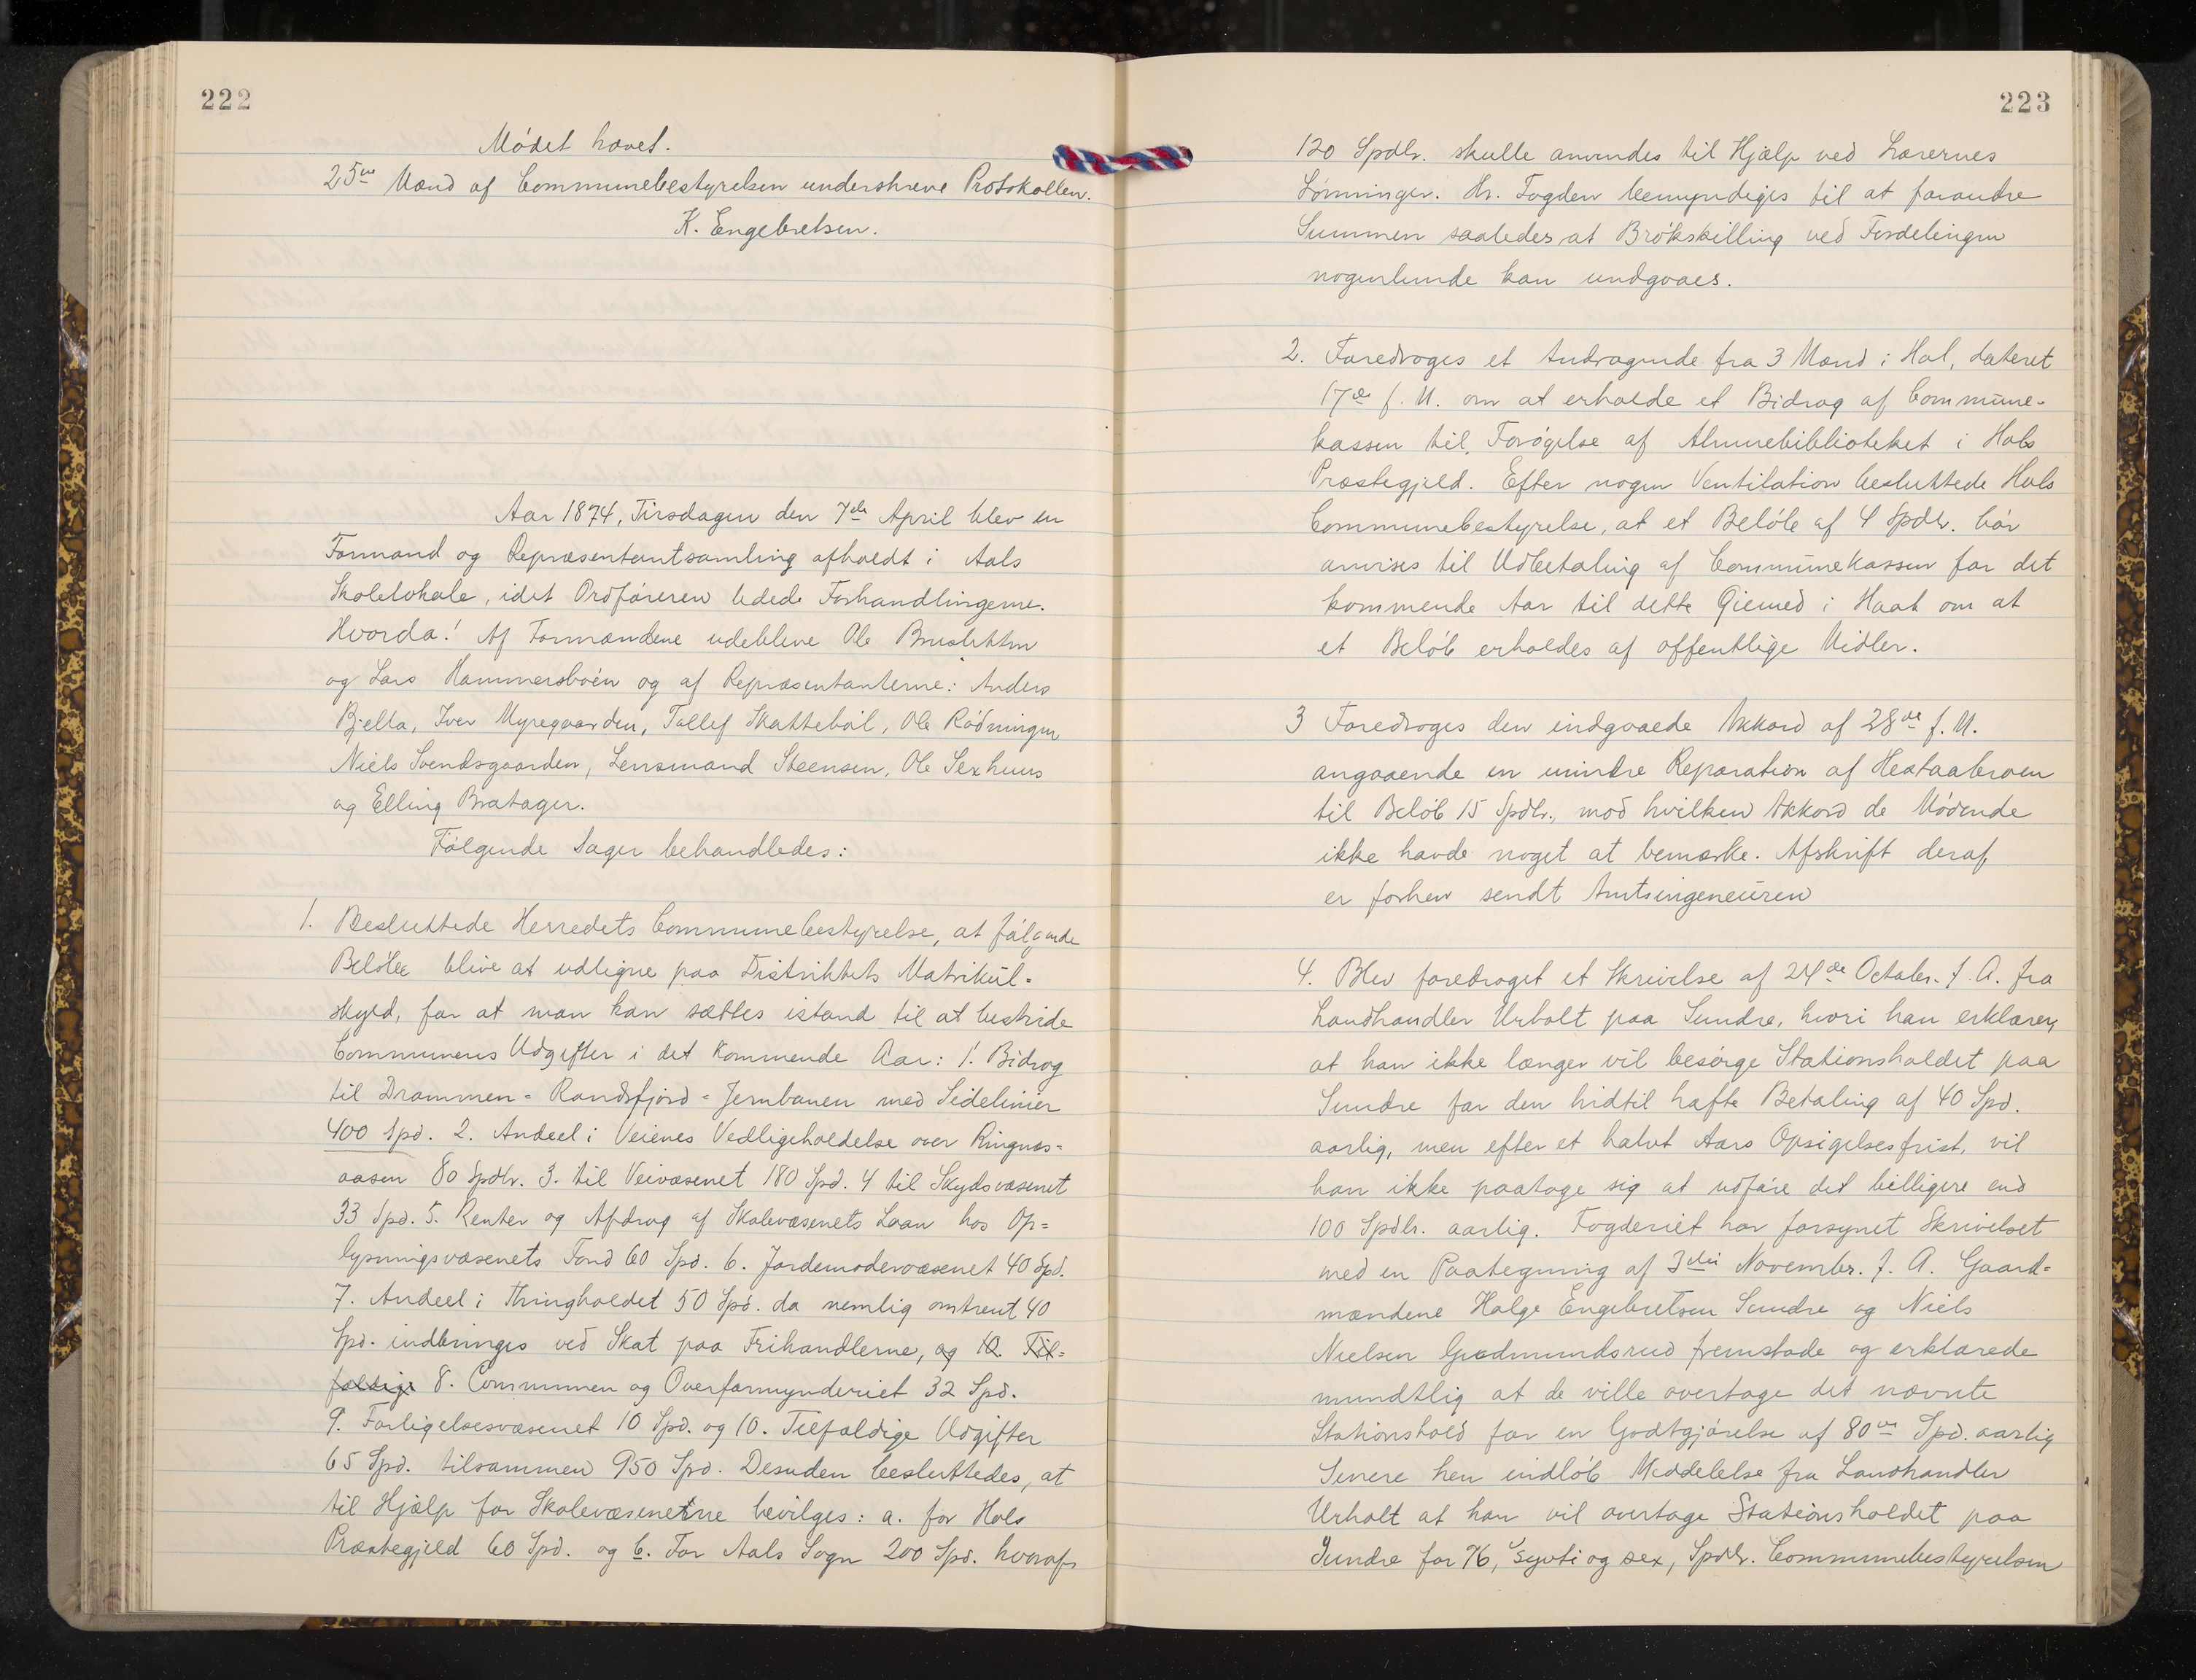 222
Mødet hævet.
25ve Mænd af Communebestyrelsen underskreve Protokollen.
K. Engebretsen.
Aar 1874, Tirsdagen den 7de April blev en
Formand og Repræsentantsamling afholdt i Aals
Skolelokale, idet Ordføreren ledede Forhandlingerne.
Hvorda! Af Formændene udebleve Ole Brusletten
og Lars Hammersbøen og af Repræsentanterne: Anders
Bjella, Iver Myregaarden, Tollef Skattebøl, Ole Rødningen
Niels Svendsgaarden, Lensmand Steensen, Ole Sexhuus
og Elling Bratager.
Følgende Sager behandledes:
1. Besluttede Herredets Communebestyrelse, at følgende
Beløbe blive at udligne paa Distriktets Matrikül=
skyld, for at man kan sættes istand til at bestride
Communens Udgifter i det kommende Aar: 1. Bidrag
til Drammen = Randsfjord = Jernbanen med Sidelinier
400 Spd. 2. Andeel i Veienes Vedligeholdelse over Ringnæs=
aasen 80 Spdlr. 3. til Veivæsenet 180 Spd. 4 til Skydsvæsenet
33 Spd. 5. Renter og Afdrag af Skolevæsenets Laan hos Op=
lysningsvæsenets Fond 60 Spd. 6. Jordemodervæsenet 40 Spd.
7. Andeel i Thingholdet 50 Spd. da nemlig omtrent 40
Spd. indbringes ved Skat paa Frihandlerne, og 10. Til=
fældige 8. Communen og Overformynderiet 32 Spd.
9. Forligelsesvæsenet 10 Spd. og 10. Tilfældige Udgifter
65 Spd. tilsammen 950 Spd. Desuden besluttedes, at
til Hjælp for Skolevæsenetrne bevilges: a. for Hols
Præstegjeld 60 Spd. og b. For Aals Sogn 200 Spd. hvoraf
223
120 Spdlr. skulle anvendes til Hjælp ved Lærernes
Lønninger. Hr. Fogden bemyndiges til at forandre
Summen saaledes at Brøkskilling ved Fordelingen
nogenlunde kan undgaaes.
2. Foredroges et Andragende fra 3 Mænd i Hol, dateret
17de f. M. om at erholde et Bidrag af Commüne-
kassen til Forøgelse af Almuebiblioteket i Hols
Præstegjeld. Efter nogen Ventilation besluttede Hols
Communebestyrelse, at et Beløb af 4 Spdlr. bør
anvises til Udbetaling af Commünekassen for det
kommende Aar til dette Øiemed i Haab om at
et Beløb erholdes af offentlige Midler.
3 Foredroges den indgaaede Akkord af 28de f. M.
angaaende en mindre Reparation af Heataabroen
til Beløb 15 Spdlr., mod hvilken Akkord de Mødende
ikke havde noget at bemærke. Afskrift deraf
er forhen sendt Amtsingeneüren
4. Blev foredraget et Skrivelse af 24de Octobr. f. A. fra
Landhandler Urholt paa Sundre, hvori han erklærer,
at han ikke længer vil besørge Stationsholdet paa
Sundre for den hidtil hafte Betaling af 40 Spd.
aarlig, men efter et halvt Aars Opsigelsesfrist, vil
han ikke paatage sig at udføre det billigere end
100 Spdlr. aarlig. Fogderiet har forsynet Skrivelset
med en Paategning af 3die Novembr. f. A. Gaard=
mændene Holge Engebretsen Sundre og Niels
Nielsen Gudmundsrud fremstode og erklærede
mundtlig at de ville overtage det nævnte
Stationshold for en Godtgjørelse af 80ve Spd. aarlig
Senere hen indløb Meddelelse fra Landhandler
Urholt at han vil overtage Stationsholdet paa
Sundre for 76, syvti og sex, Spdlr. Communebestyrelsen